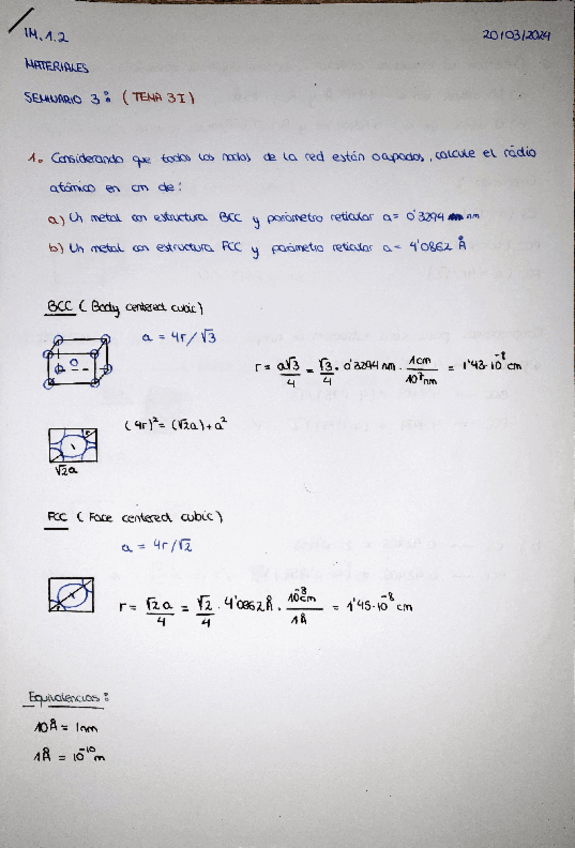 IM.1.2
20/03/2024
MATERIALES
SEMINARIO 3: (TEMA 3I)
1. Considerando que todos los nodos de la red están ocupados, calcule el rádio
atómico en cm de:
a) Un metal con estructura BCC y parámetro reticular a= 0'3294 nm
b) Un metal con estructura FCC y parámetro reticular a= 4'0862 Å
BCC (Body centered cubic)
a = 4r/√3
r = a√3/4 = √3/4 · 0'3294 nm · 1cm/10⁷nm = 1'43·10⁻⁸ cm
(4r)² = (√2a)+a²
√2a
FCC (Face centered cubic)
a = 4r/√2
r = √2a/4 = √2/4 · 4'0862Å · 10⁻⁸cm/1Å = 1'45·10⁻⁸ cm
Equivalencias:
10Å = 1nm
1Å = 10⁻¹⁰m